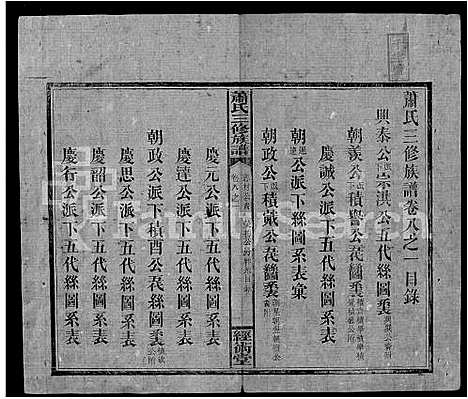 蕭氏三修族譜卷八之一目錄
興泰公下宗淇公五代絲圖表
朝羨公下積譽公五代絲圖表
慶誠公派下絲圖系表彙
朝政公下積藏公五代絲圖表
蕭氏三修族譜
卷八之一
經商堂
慶元公派下五代絲圖系表
慶達公派下五代絲圖系表
朝政公派下積酉公五代絲圖表
慶思公派下五代絲圖系表
慶韶公派下五代絲圖系表
慶行公派下五代絲圖系表
FamilySearch